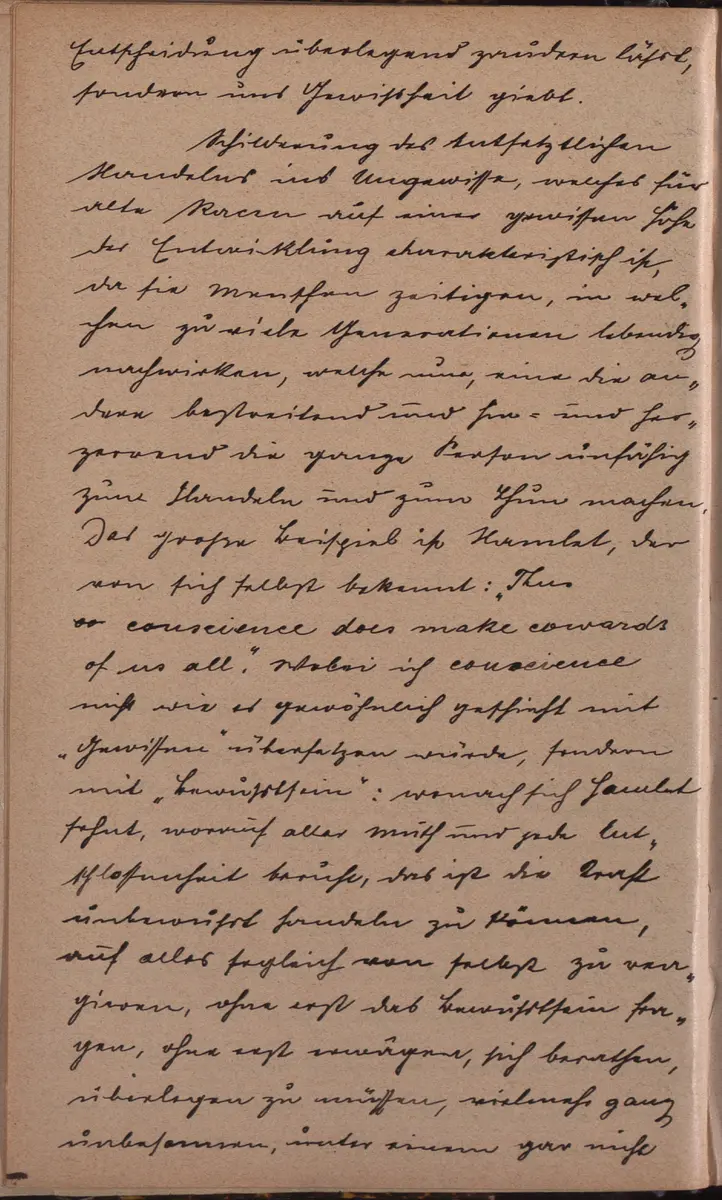 Entscheidung überlegend zaudern läßt,
sondern uns Gewißheit giebt.
Schilderung des Entsetztlichen
Handelns ins Ungewisse, welches für
alte Racen auf einer gewissen Höhe
der Entwicklung charakteristisch ist,
da sie Menschen zeitigen, in wel-
chen zu viele Generationen lebendig
nachwirken, welche nun, eine die an-
dere bestreitend und hin- und her-
zerrend die ganze Person unfähig
zum Handeln und zum Thun machen.
Das große Beispiel ist Hamlet, der
von sich selbst bekennt: „Thus
conscience does make cowards
of us all“. Wobei ich conscience
nicht wie es gewöhnlich geschieht mit
„Gewissen“ übersetzen würde, sondern
mit „Bewußtsein“: wonach sich Hamlet
sehnt, worauf aller Muth und jede Ent-
schlossenheit beruht, das ist die Kraft
unbewußt handeln zu können,
auf alles sogleich von selbst zu rea-
gieren, ohne erst das Bewußtsein fra-
gen, ohne erst erwägen, sich berathen,
überlegen zu müssen, vielmehr ganz
unbesonnen, unter einem gar nicht